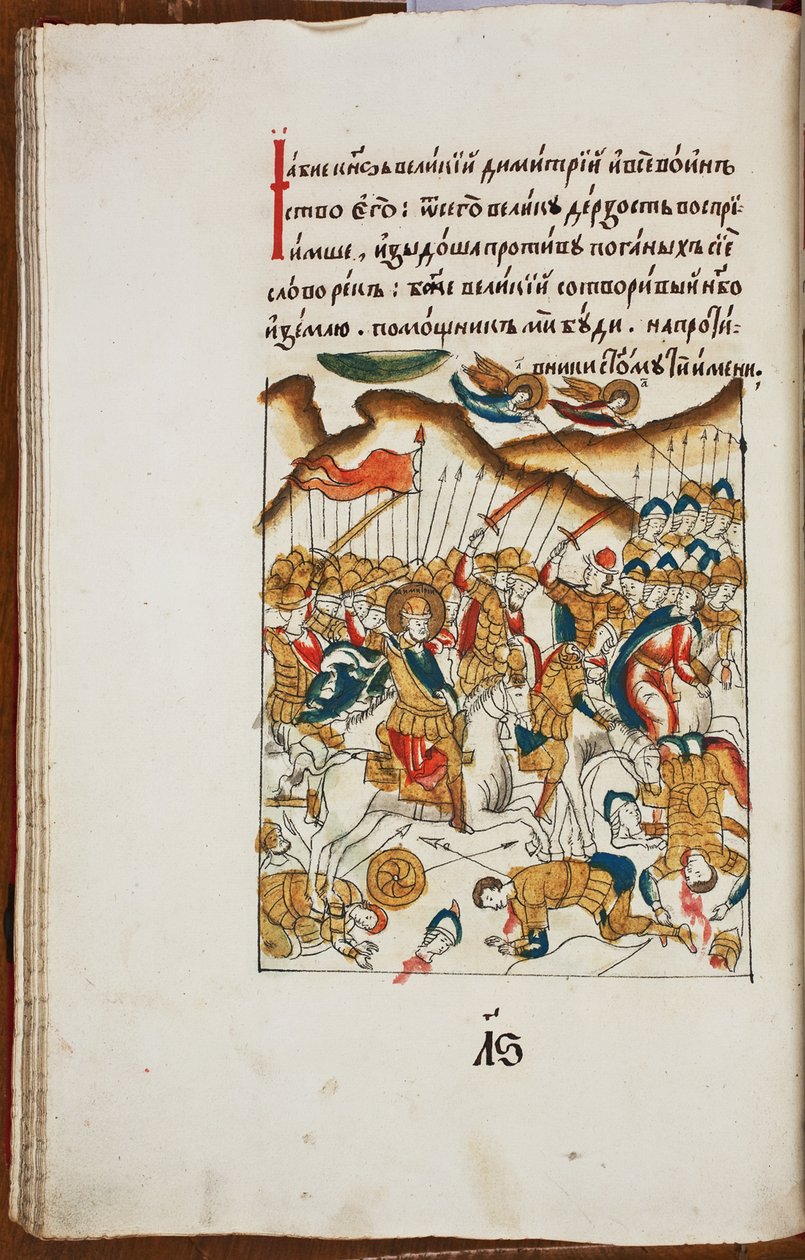 И҆ абие кн҃зь вели́кїй дими́трїй и҆ все во́инъ
ство є҆гѡ̀: ѿ сегѡ̀ вели́ку де́рзость воспрї:
и́мше, и҆зыдо́ша проти́ву пога́ныхъ сїѐ
сло́во ре́къ: бж҃е вели́кїй сотвори́вый нб҃о
и҆ зе́млю. помо́щникъ мѝ бу́ди. на проти́:
вники ст҃о́му тѝ и́мени.
димитрїй
л҃ѕ